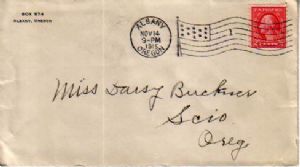 BOX 974
ALBANY, OREGON
ALBANY
NOV 14
9-PM
OREGON
1
Miss Daisy Buckner
Scio
Oreg.